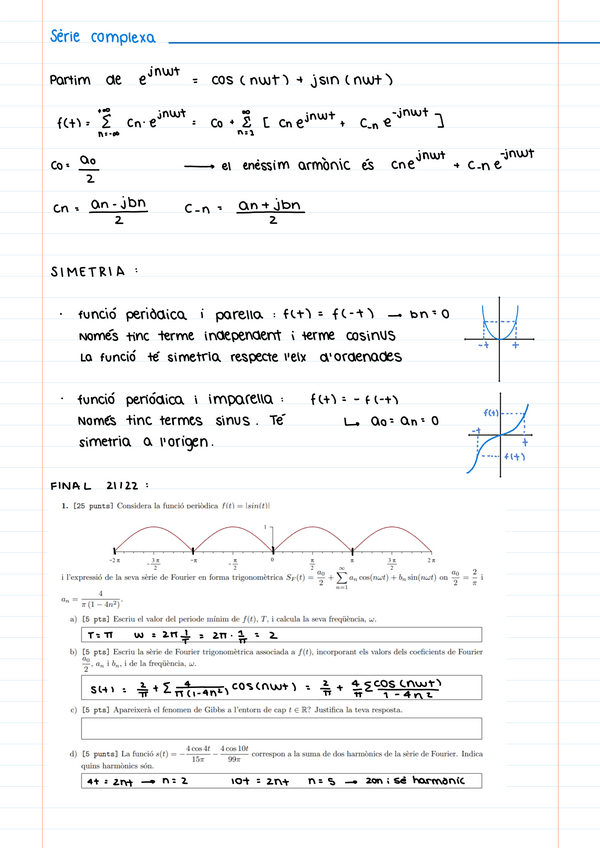 Sèrie complexa
Partim de e^{jnωt} = cos (nωt) + jsin (nωt)
f(t) = Σ_{n=-∞}^{+∞} Cn · e^{jnωt} = Co + Σ_{n=1}^{∞} [ Cn e^{jnωt} + C-n e^{-jnωt} ]
Co = ao/2 → el enèssim armònic és Cne^{jnωt} + C-n e^{-jnωt}
Cn = an - jbn / 2 C-n = an + jbn / 2
SIMETRIA :
· funció periòdica i parella : f(t) = f(-t) → bn = 0
Només tinc terme independent i terme cosinus
La funció té simetria respecte l'eix d'ordenades
-t t
· funció periódica i imparella : f(t) = - f(-t)
Només tinc termes sinus. Té ↳ ao = an = 0
simetria a l'origen.
f(t)
-t
t
f(t)
FINAL 21/22 :
1. [25 punts] Considera la funció periòdica f(t) = |sin(t)|
1
-2π -3π/2 -π -π/2 0 π/2 π 3π/2 2π
i l'expressió de la seva sèrie de Fourier en forma trigonomètrica S_F(t) = a_0/2 + Σ_{n=1}^{∞} a_n cos(nωt) + b_n sin(nωt) on a_0/2 = 2/π i
a_n = 4/(π(1 − 4n²)).
a) [5 pts] Escriu el valor del periode mínim de f(t), T, i calcula la seva freqüència, ω.
T = π ω = 2π 1/T = 2π · 1/π = 2
b) [5 pts] Escriu la sèrie de Fourier trigonomètrica associada a f(t), incorporant els valors dels coeficients de Fourier
a_0/2, a_n i b_n, i de la freqüència, ω.
S(t) = 2/π + Σ 4/π(1-4n²) cos(nωt) = 2/π + 4/π Σ cos(nωt)/1-4n²
c) [5 pts] Apareixerà el fenomen de Gibbs a l'entorn de cap t ∈ ℝ? Justifica la teva resposta.
d) [5 punts] La funció s(t) = − 4 cos 4t/15π − 4 cos 10t/99π correspon a la suma de dos harmònics de la sèrie de Fourier. Indica
quins harmònics són.
4t = 2nt → n = 2 10t = 2nt n = 5 → 2on i 5è harmònic